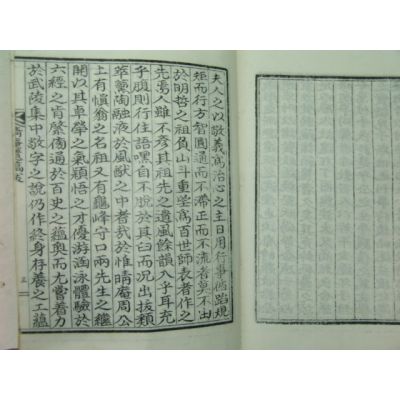 夫人之以敬義爲治心之主日用行事循蹈規
矩而行方智圓通而不滯正而不流者莫不出
於明哲之祖負山斗重望爲百世師表者作之
先焉人雖不亦其祖先之遺風餘韻入乎耳充
乎腹則行住語嘿自不脫於其臼而況出拔類
萃薰陶融液於風猷之中者哉於惟晴庵周公
上有愼翁之名祖又有龜峰守口兩先生之繼
開以其卓犖之氣穎悟之才優游涵泳體驗於
六經之肯綮傍通於百史之蘊奧而尤嘗着力
於武陵集中敬字之說仍作終身存養之工蘊
三